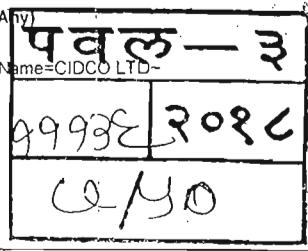 Any)
पवल — ३
Name=CIDCO LTD~
१११३६ २०१८